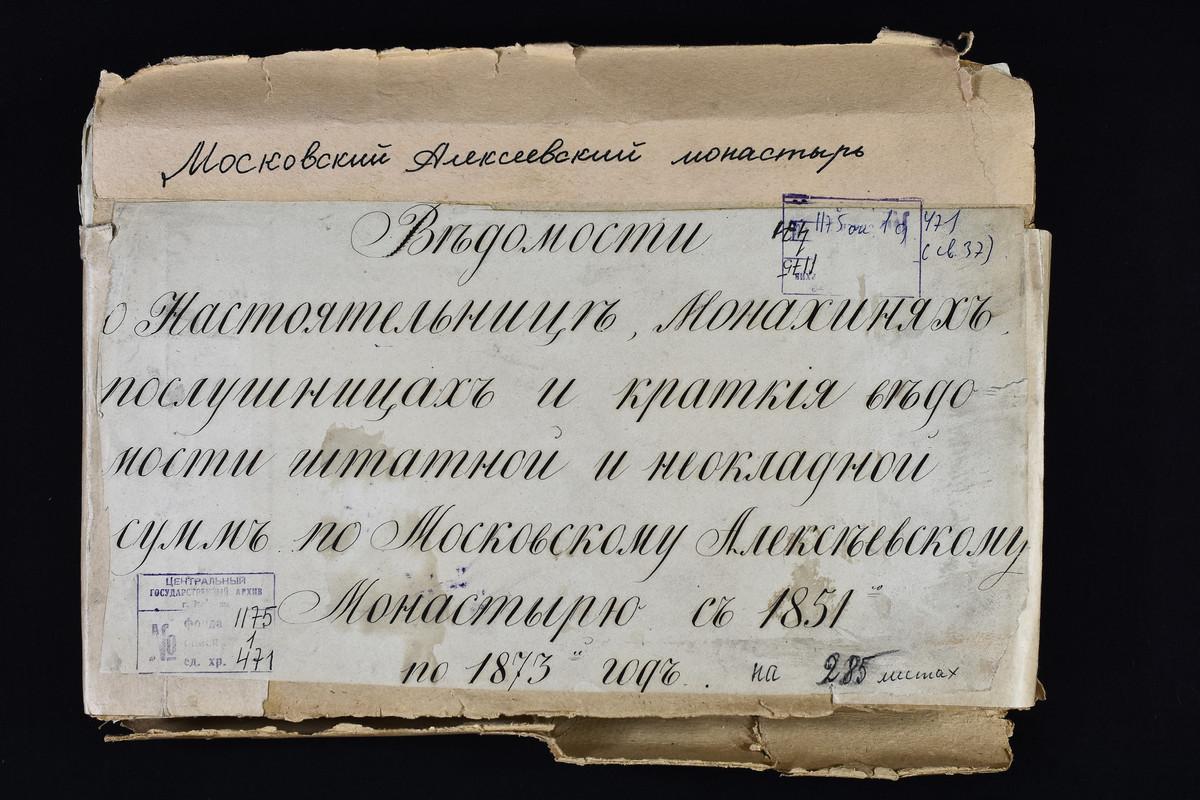 Московский Алексеевский монастырь
Вѣдомости
1175 оп 1 д 471
(св. 37)
о Настоятельницѣ, Монахиняхъ,
послушницахъ и краткія вѣдо
мости штатной и неокладной
суммъ по Московскому Алексѣевскому
Монастырю съ 1851го
по 1873й годъ. на 285 листах
ЦЕНТРАЛЬНЫЙ
ГОСУДАРСТВЕННЫЙ АРХИВ
фонда 1175
описи 1
ед. хр. 471